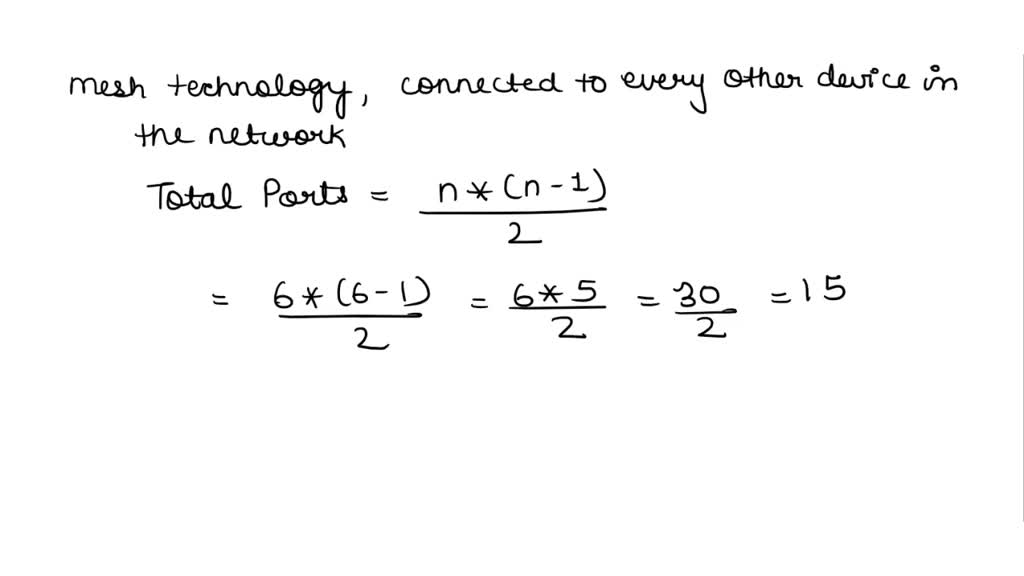 mesh technology, connected to every other device in
the network
Total Ports = n*(n-1)/2
= 6*(6-1)/2 = 6*5/2 = 30/2 = 15